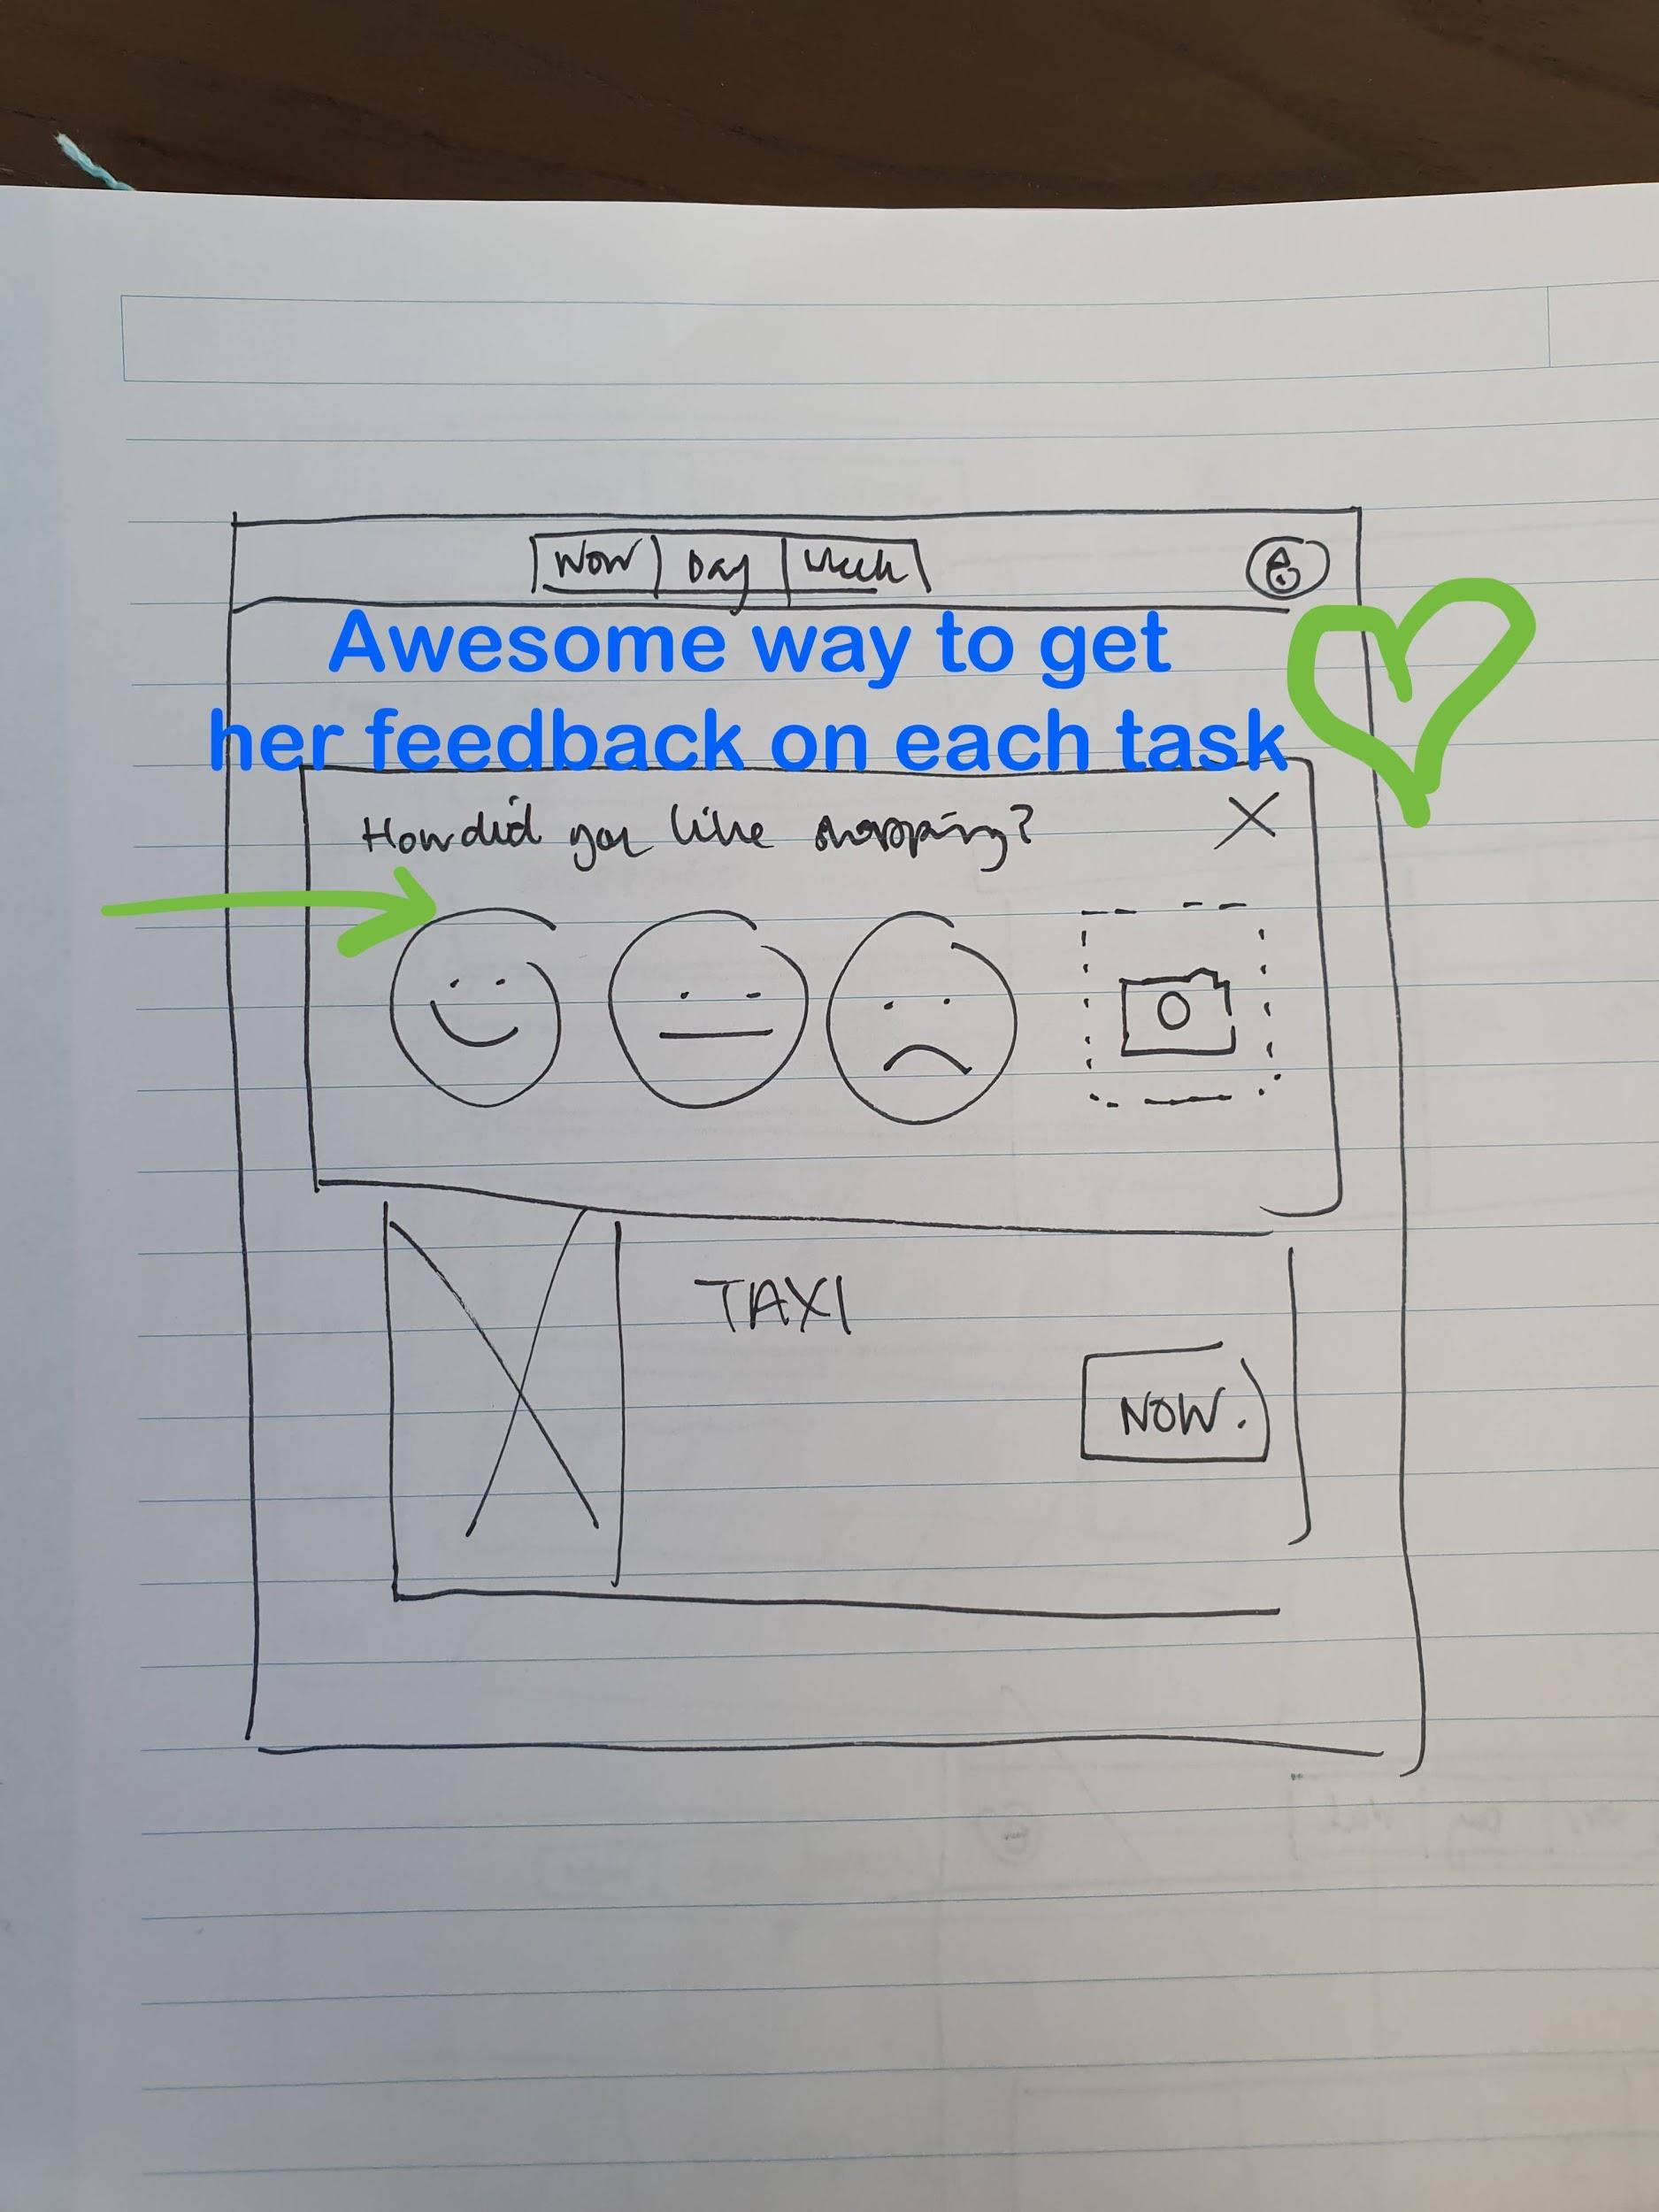 Now Day Week
Awesome way to get
her feedback on each task
How did you like shopping?
TAXI
NOW.